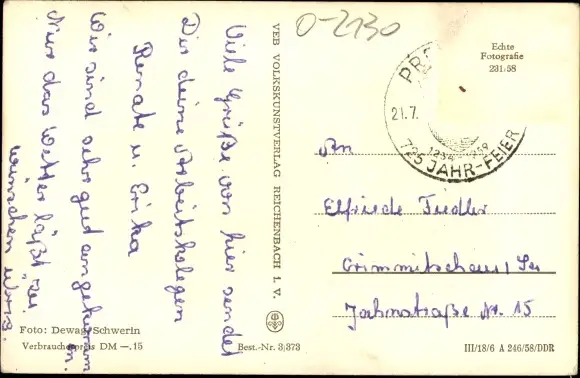 O-2130
Viele Grüße von hier sendet
Dir deine Arbeitskolegen
Renate u. Erika
Wir sind sehr gut angekommen.
Nur das Wetter läßt zu
wünschen übrig.
VEB VOLKSKUNSTVERLAG REICHENBACH I. V.
Echte
Fotografie
231:58
PR
21.7.
1234
725 JAHR-FEIER
An
Elfriede Fiedler
Crimmitschau / Sa
Jahnstraße Nr. 15
Foto: Dewag-Schwerin
Verbraucherpreis DM —.15
Best.-Nr. 3/373
III/18/6 A 246/58/DDR